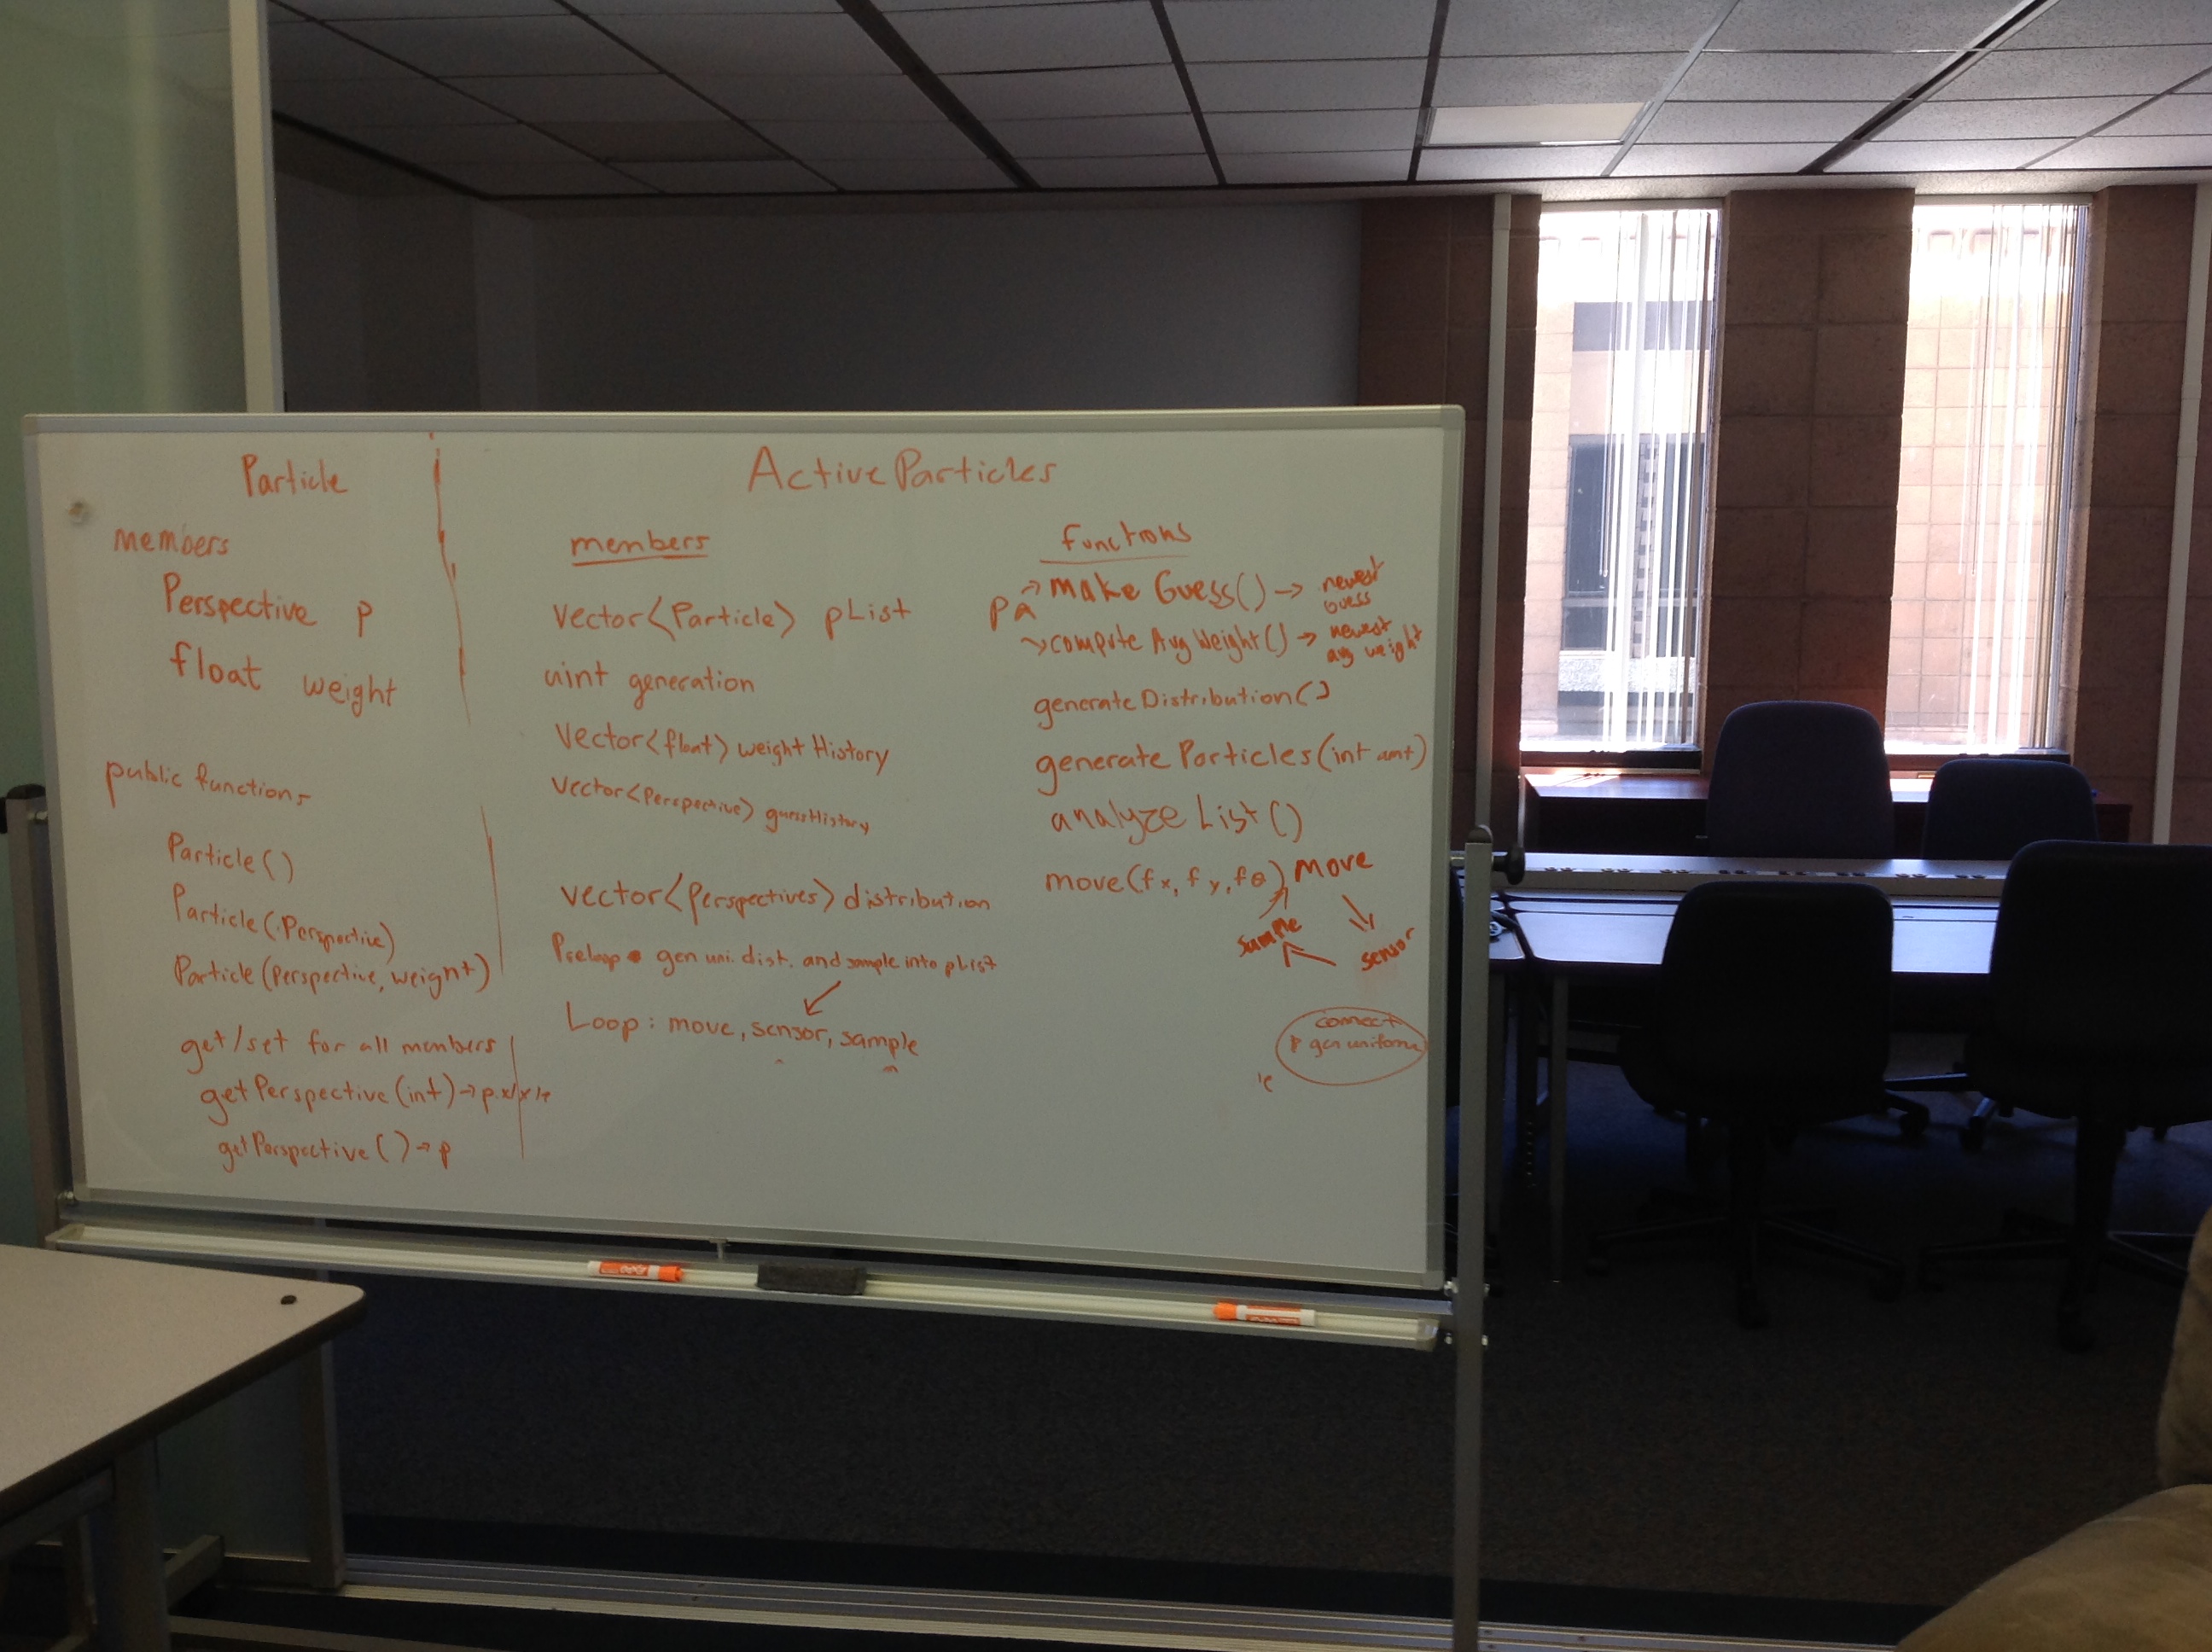 Particle
members
Perspective p
float weight
public functions
Particle()
Particle(Perspective)
Particle(Perspective, weight)
get/set for all members
getPerspective(int)→p.x/y/
getPerspective()→p
ActiveParticles
members
Vector<Particle> pList
uint generation
Vector<float> weightHistory
Vector<Perspective> guessHistory
vector<perspectives> distribution
Preloop gen uni. dist. and sample into pList
Loop: move, sensor, sample
functions
makeGuess() → newest
Guess
computeAvgWeight() → newest
avg weight
generateDistribution()
generateParticles(int amt)
analyzeList()
move(fx, fy, fθ)
move
sensor
sample
connect
gen uniform